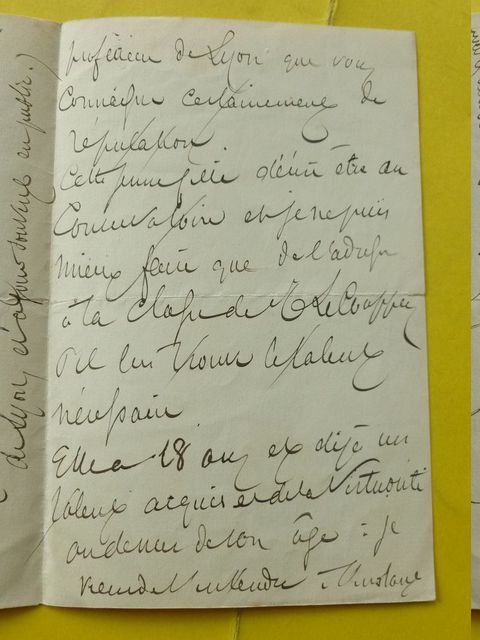 professeur de Lyon que vous
connaissez certainement de
réputation.
Cette jeune fille désire être au
Conservatoire et je ne puis
mieux faire que de l'adresser
à la classe de M. Le Couppey
s'il lui trouve le talent
nécessaire
Elle a 18 ans et déjà un
talent acquis et de la Virtuosité
au dessus de son âge : je
viens de l'entendre
de Lyon et a joué souvent en public.)